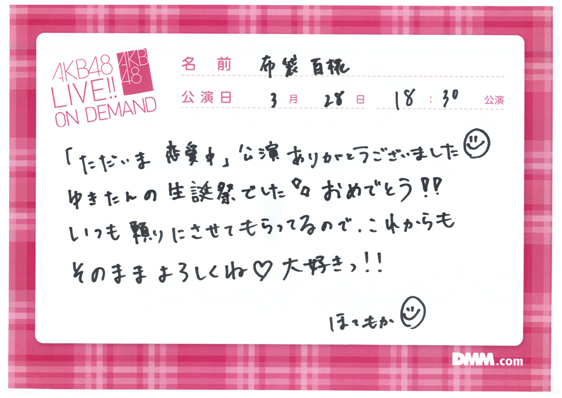 AKB48
LIVE!!
ON DEMAND
AKB
48
名前 布袋百椛
公演日 3月 28日 18:30 公演
「ただいま 恋愛中」公演ありがとうございました
ゆきたんの生誕祭でした おめでとう!!
いつも頼りにさせてもらってるので、これからも
そのままよろしくね♡大好きっ!!
ほてもか
DMM.com